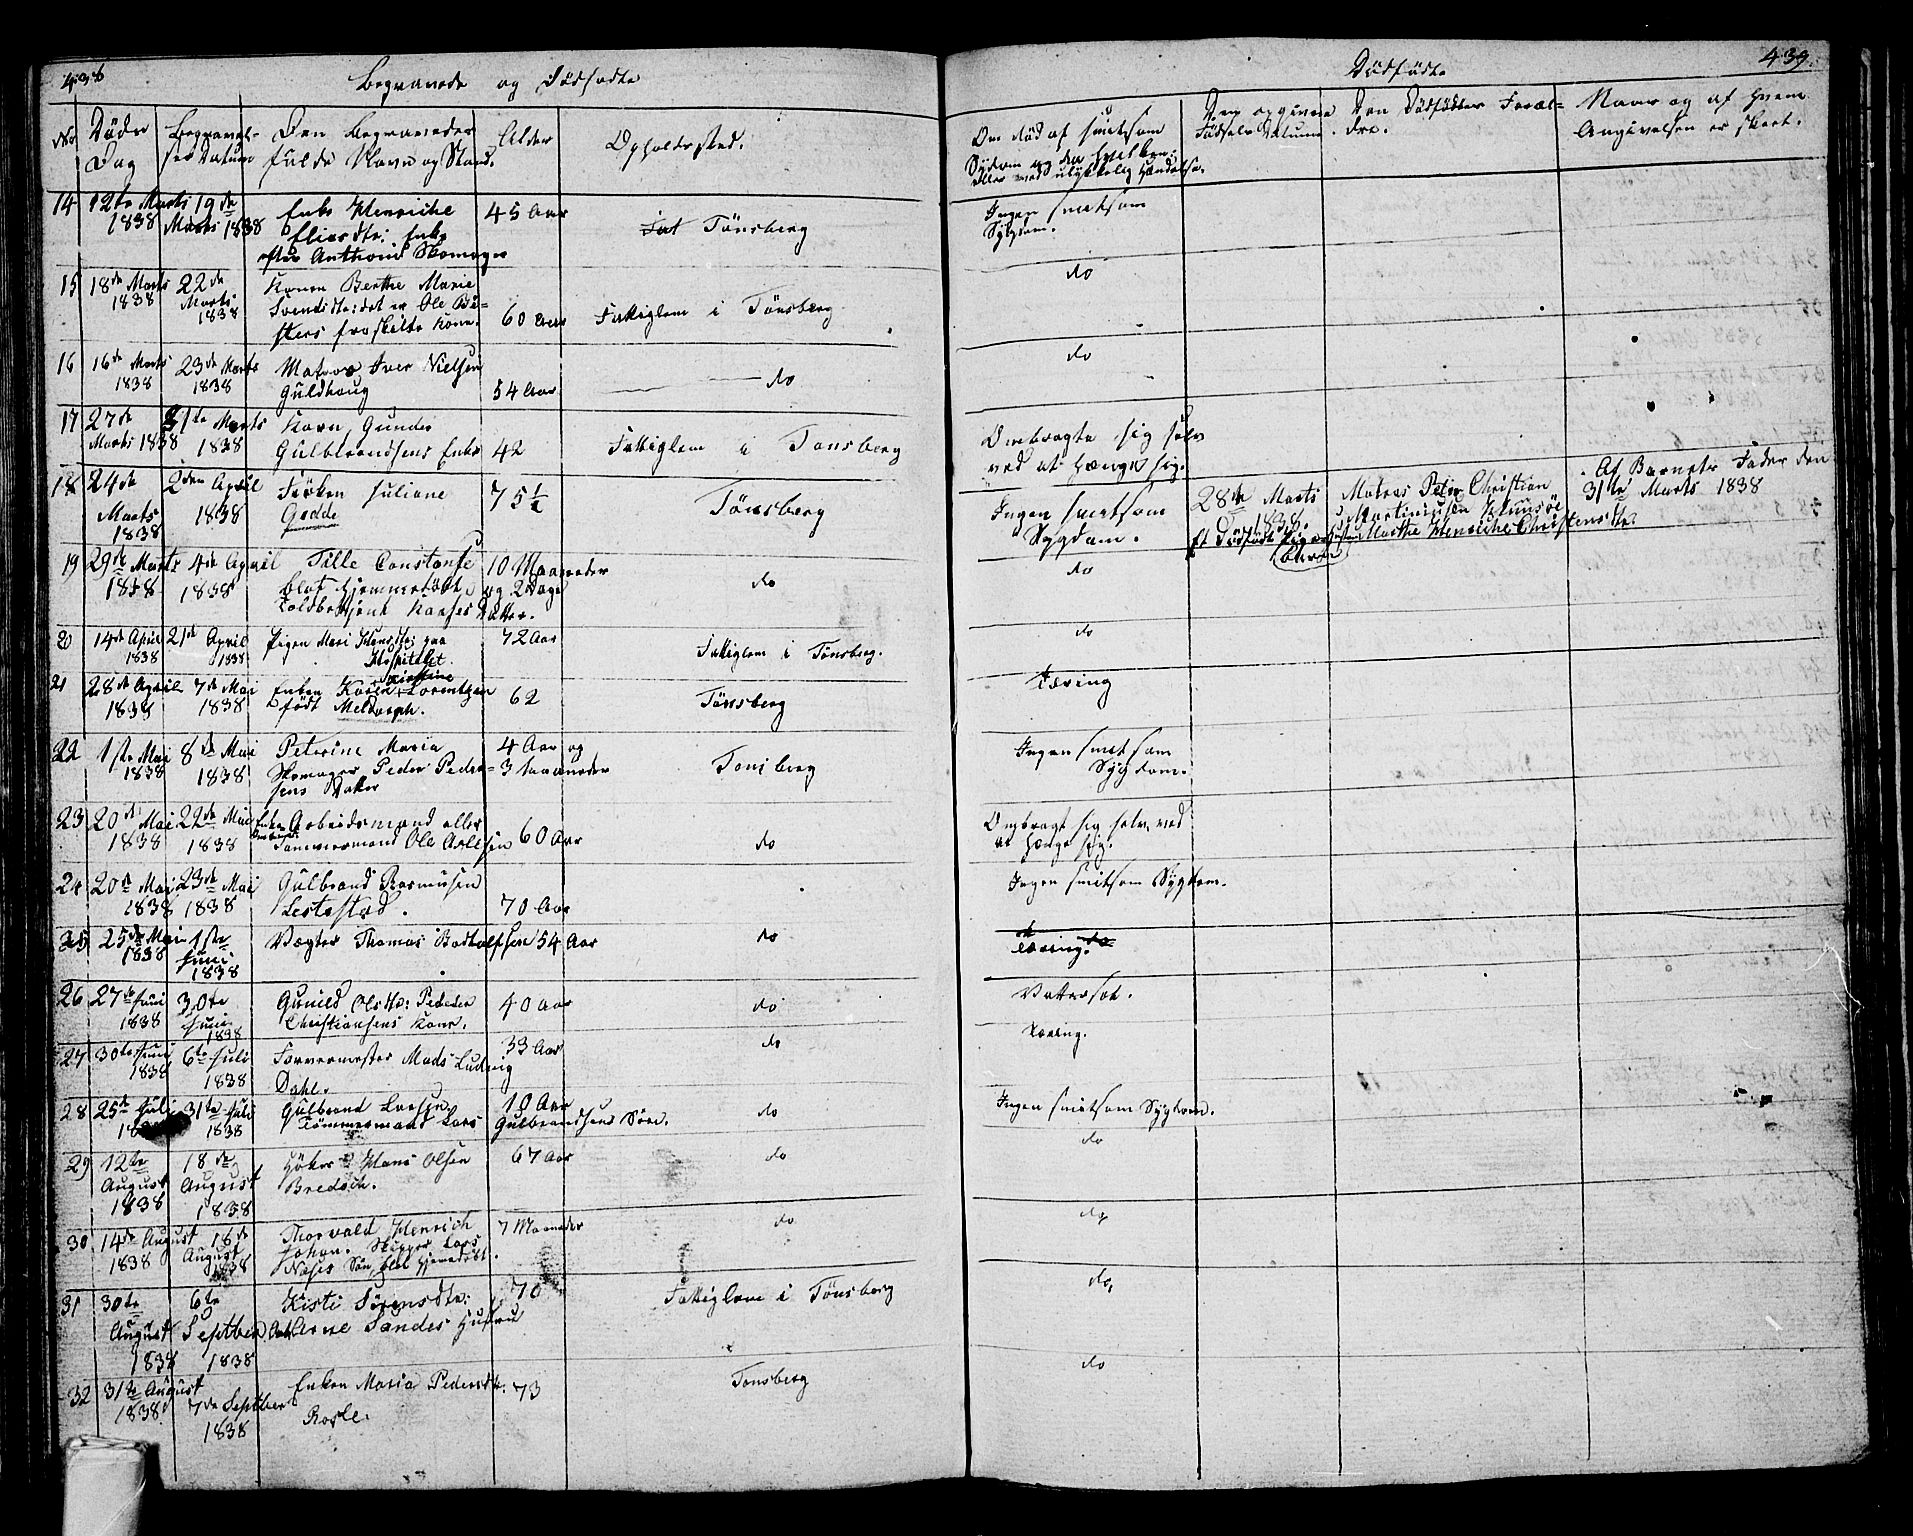 438
Begravede og Dödfödte
No
Döds Dag
Begravelses Datum
Den Begravedes fulde Navn og Stand.
Alder
Opholdssted.
14 12te Marts 1838 19de Marts 1838 Enke Henriche Eliasdtr: Enke efter Anthoni Skomager 45 Aar Tönsberg
15 18de Marts 1838 22de Marts 1838 Konen Berthe Marie Svendsdtr: det er Ole fraskilte Kone. 60 Aar Fattiglem i Tönsberg
16 16de Marts 1838 23de Marts 1838 Matros Iver Nielsen Guldhaug 54 Aar do
17 27de Marts 1838 31te Marts 1838 Karn, Gunder Gulbrandsens Enke 42 Fattiglem i Tonsberg
18 24de Marts 1838 2den April 1838 Fröken Juliane Gedde 75½ Tönsberg
19 29de Marts 1838 4de April 1838 Tille Constanse blot hjemmedöbt Toldbetjent Datter. 10 Maaneder og 2 Dage do
20 14de April 1838 21de April 1838 Pigen Mari paa Hospitalet. 72 Aar Fattiglem i Tönsberg.
21 28de April 1838 7de Mai 1838 Enken Karen Kirstine Lorentzen född Meldorph. 62 Tönsberg
22 1ste Mai 1838 8de Mai 1838 Petrine Maria Skomager Peder Pedersens Datter 4 Aar og 3 Maaneder Tonsberg
23 20de Mai 1838 22de Mai 1838 Arbeidsmand eller Tømmermand Ole 60 Aar do
24 20de Mai 1838 23de Mai 1838 Gulbrand Rasmusen Lestestad. 70 Aar
25 25de Mai 1838 1ste Juni 1838 Vægter Thomas 54 Aar do
26 27de Juni 1838 30te Juni 1838 Gunild Olsdtr: Peder Christiansens Kone. 40 Aar do
27 30te Juni 1838 6te Juli 1838 Farvermester Mads Ludvig Dahl. 33 Aar do
28 25de Juli 1838 31te Juli 1838 Gulbrand Larsen Tömmermand Lars Gulbrandsens Sön. 10 Aar do
29 12te August 1838 18de August 1838 Höker Hans Olsen Bredoch. 67 Aar do
30 14de August 1838 18de August 1838 Thorvald Henrich Johan. Skipper Lars Næses Sön, blot hjemmedöbt. 7 Maaneder do
31 30te August 1838 6te Septber 1838 Kisti Sörensdtr: Arne Sandes Hustru 70 Fattiglem i Tönsberg
32 31te August 1838 7de Septber 1838 Enken Maria Pedersdtr. 73 Tonsberg
Dödfödte
439.
Om död af smitsom Sygdom og da hvilken eller ved ulykkelig Hændelse.
Den opgivne Födsels Datum.
Den Dödfödtes Forældre.
Naar og af Hvem Angivelsen er skeet.
Ingen smitsom Sygdom.
do
do
Ombragte sig selv ved at hænge sig.
Ingen smitsom Sygdom. 28de Marts 1838. Et dödfödt Matros Peter Christian Martiniusen og Marthe Henriche Christensdtr. Af Barnets Fader den 31te Marts 1838
do
do
Tæring
Ingen smitsom Sygdom.
Ombragt sig selv ved at hænge sig.
Ingen smitsom Sygdom.
Tæring.
Vatersot.
Tæring.
Ingen smitsom Sygdom.
do
do
do
do